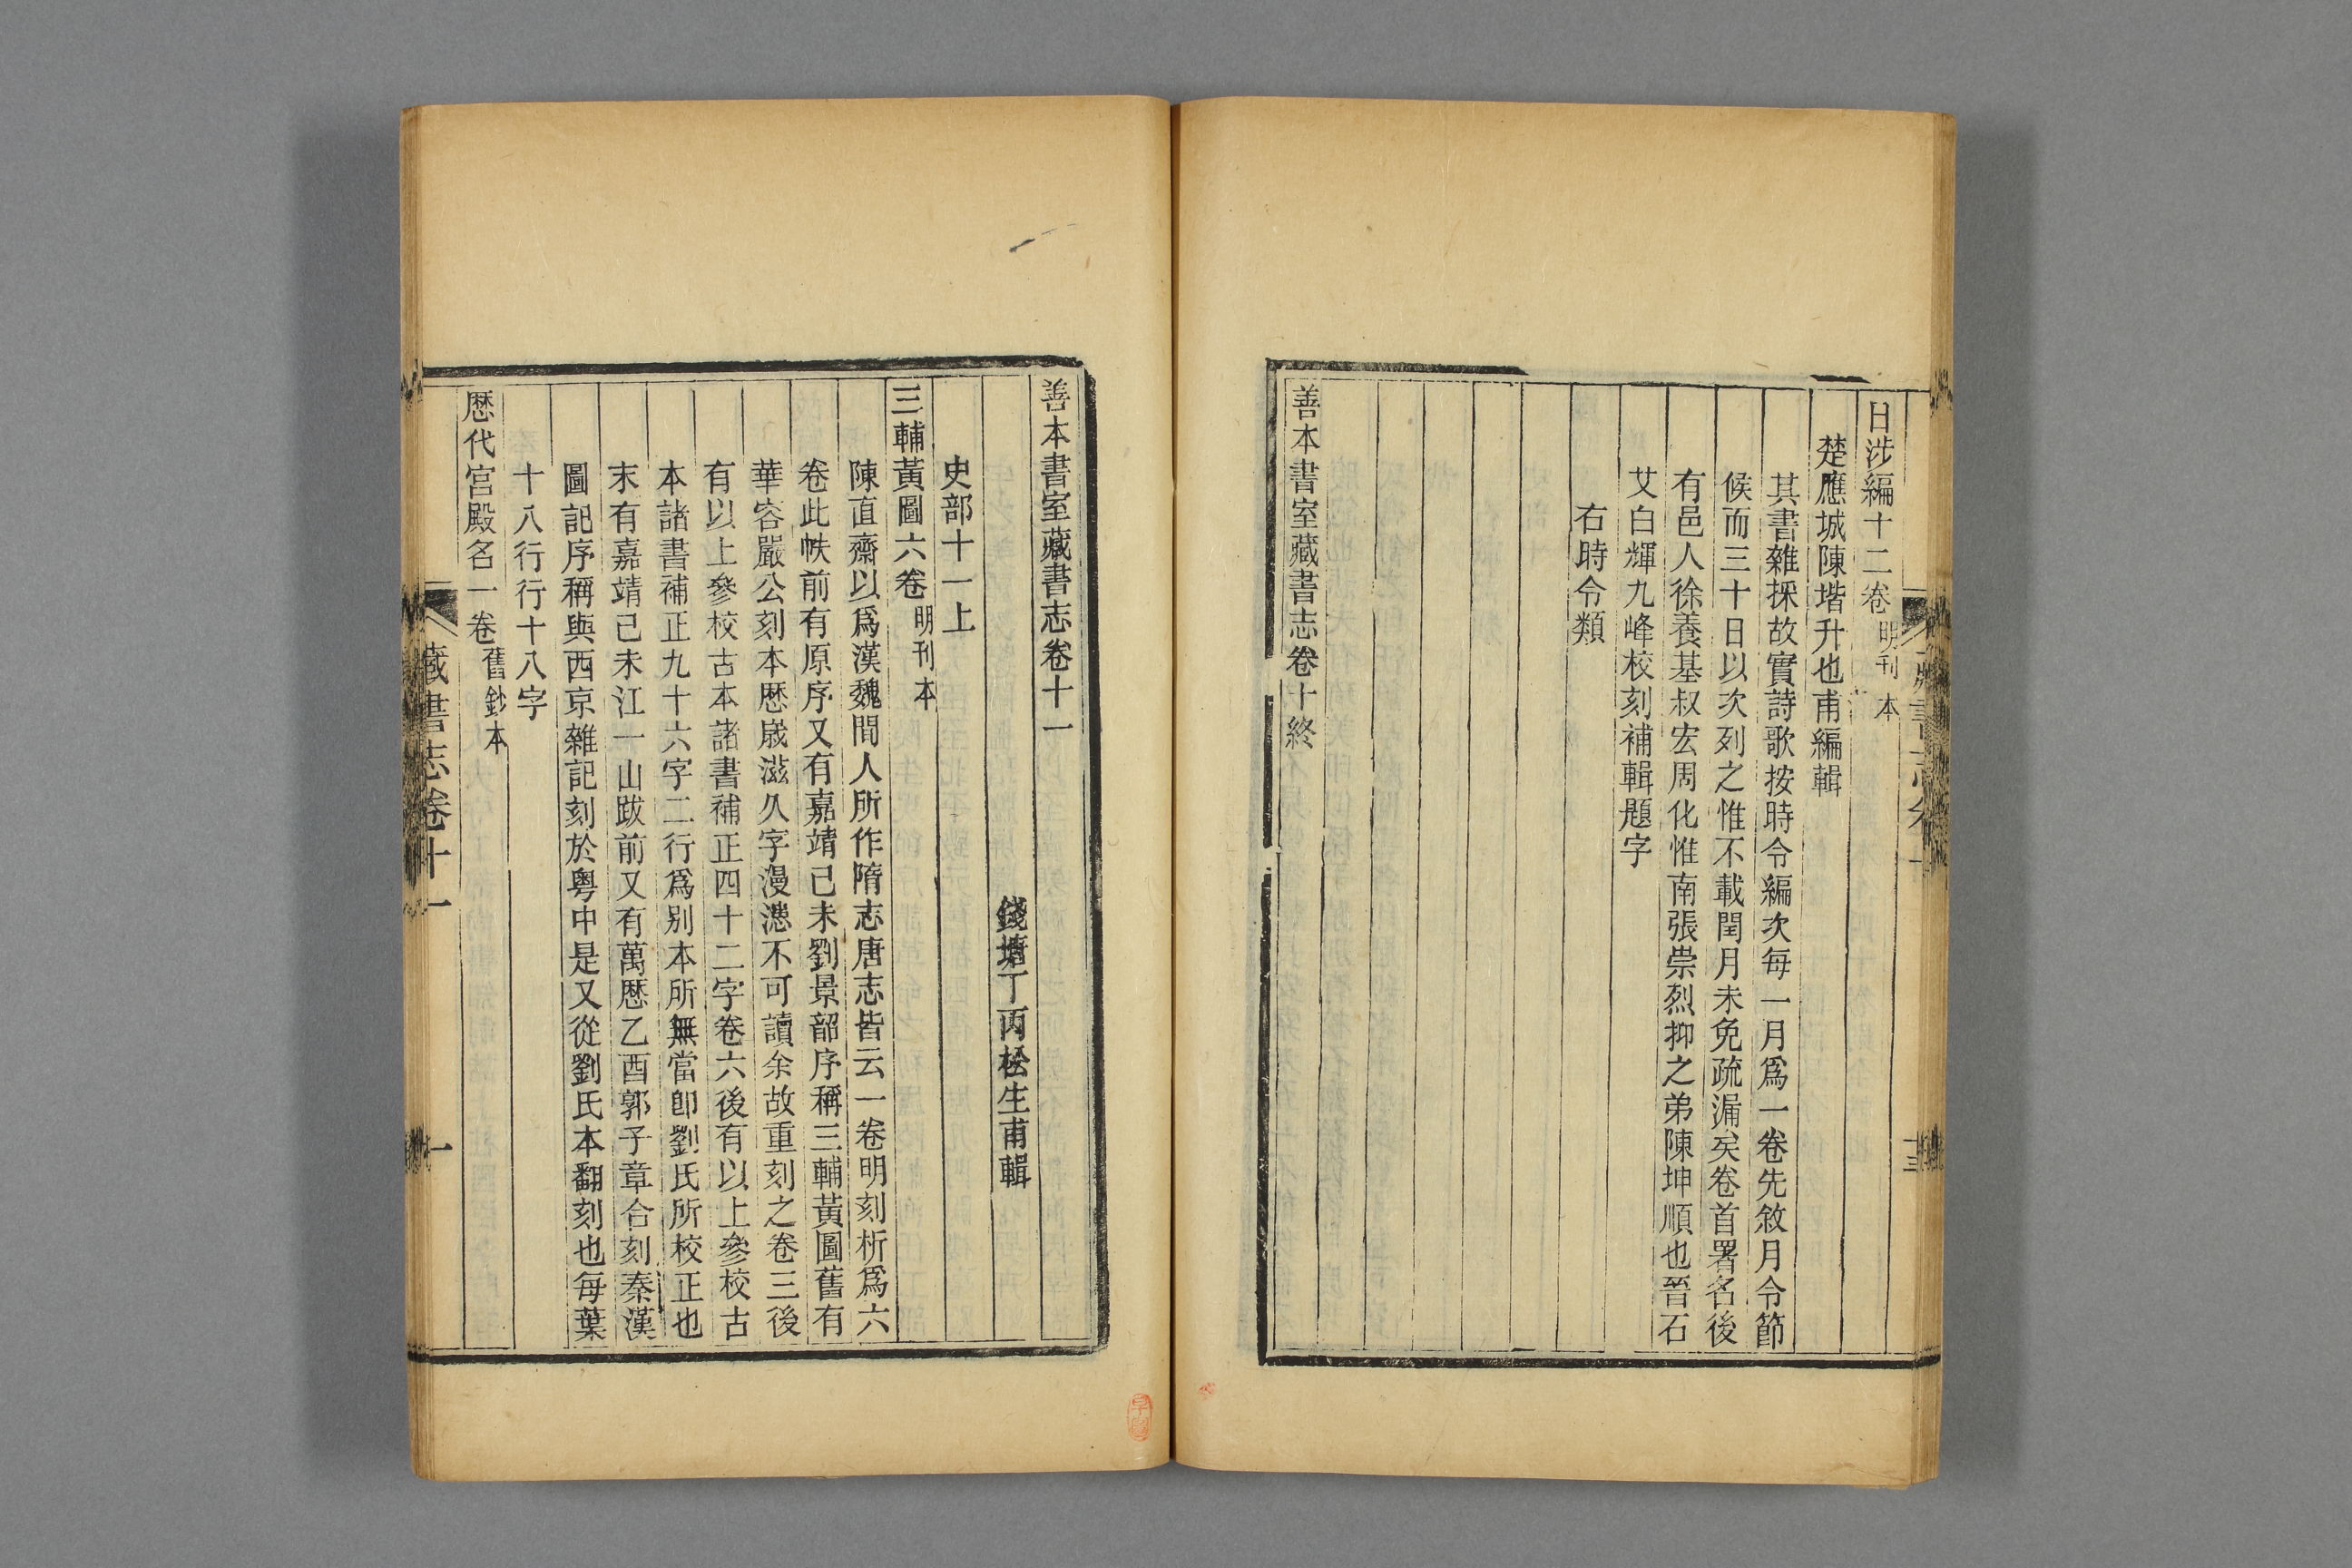 日涉編十二卷明刊本
楚應城陳堦升也甫編輯
其書雜採故實詩歌按時令編次每一月爲一卷先敘月令節
候而三十日以次列之惟不載閏月未免疏漏矣卷首署名後
有邑人徐養基叔宏周化惟南張崇烈抑之弟陳坤順也晉石
艾白輝九峰校刻補輯題字
右時令類
善本書室藏書志卷十終
善本書室藏書志卷十一
錢塘丁丙松生甫輯
史部十一上
三輔黃圖六卷明刊本
陳直齋以爲漢魏間人所作隋志唐志皆云一卷明刻析爲六
卷此帙前有原序又有嘉靖己未劉景韶序稱三輔黃圖舊有
華容嚴公刻本歷歲滋久字漫漶不可讀余故重刻之卷三後
有以上參校古本諸書補正四十二字卷六後有以上參校古
本諸書補正九十六字二行爲別本所無當卽劉氏所校正也
末有嘉靖己未江一山跋前又有萬歷乙酉郭子章合刻秦漢
圖記序稱與西京雜記刻於粤中是又從劉氏本翻刻也每葉
十八行行十八字
歷代宮殿名一卷舊鈔本
藏書志卷十一
一